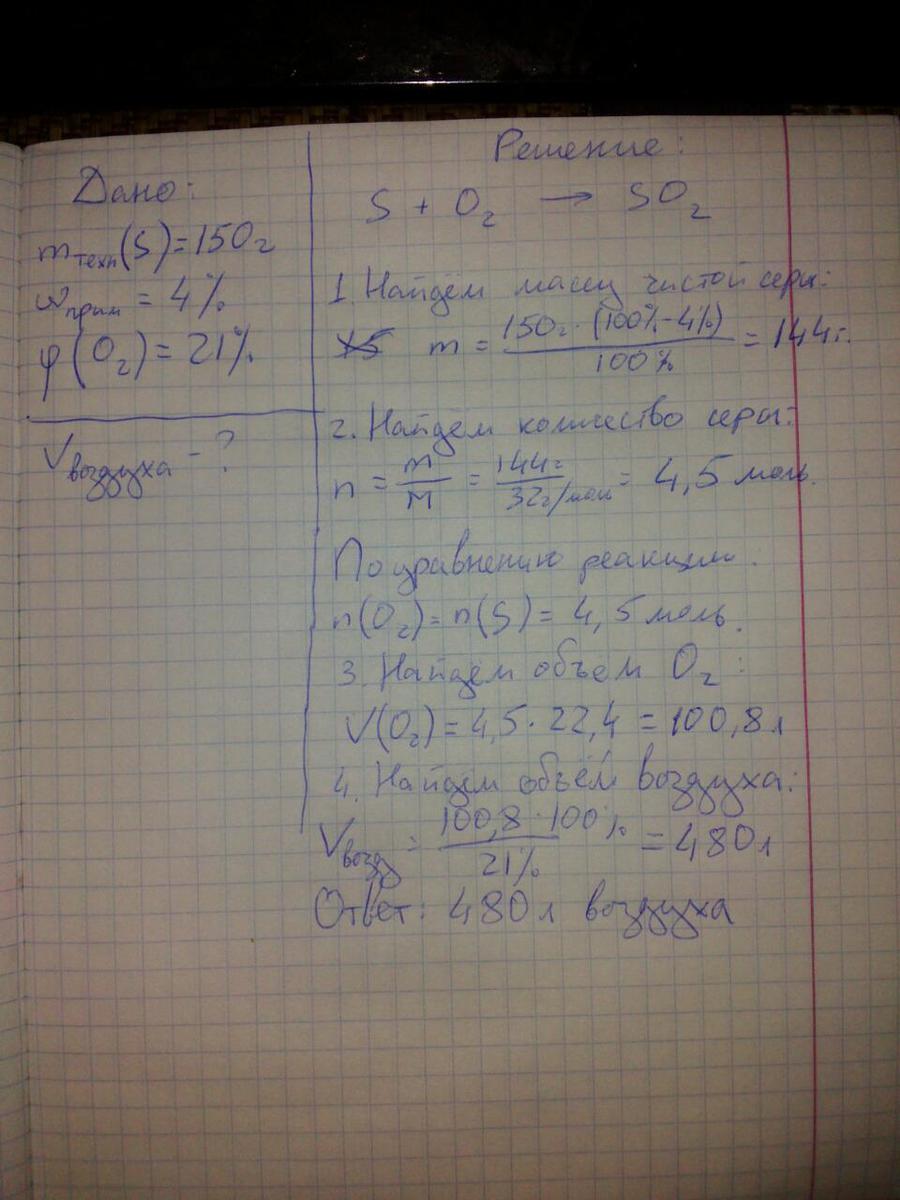 Дано:
m техн (S) = 150 г
ω прим = 4%
φ(O₂) = 21%
V воздуха - ?
Решение:
S + O₂ → SO₂
1. Найдём массу чистой серы:
m = 150г · (100% - 4%) / 100% = 144 г.
2. Найдём количество серы:
n = m / M = 144г / 32г/моль = 4,5 моль.
По уравнению реакции:
n(O₂) = n(S) = 4,5 моль.
3. Найдём объём O₂:
V(O₂) = 4,5 · 22,4 = 100,8 л
4. Найдём объём воздуха:
V возд = 100,8 · 100% / 21% = 480 л
Ответ: 480 л воздуха